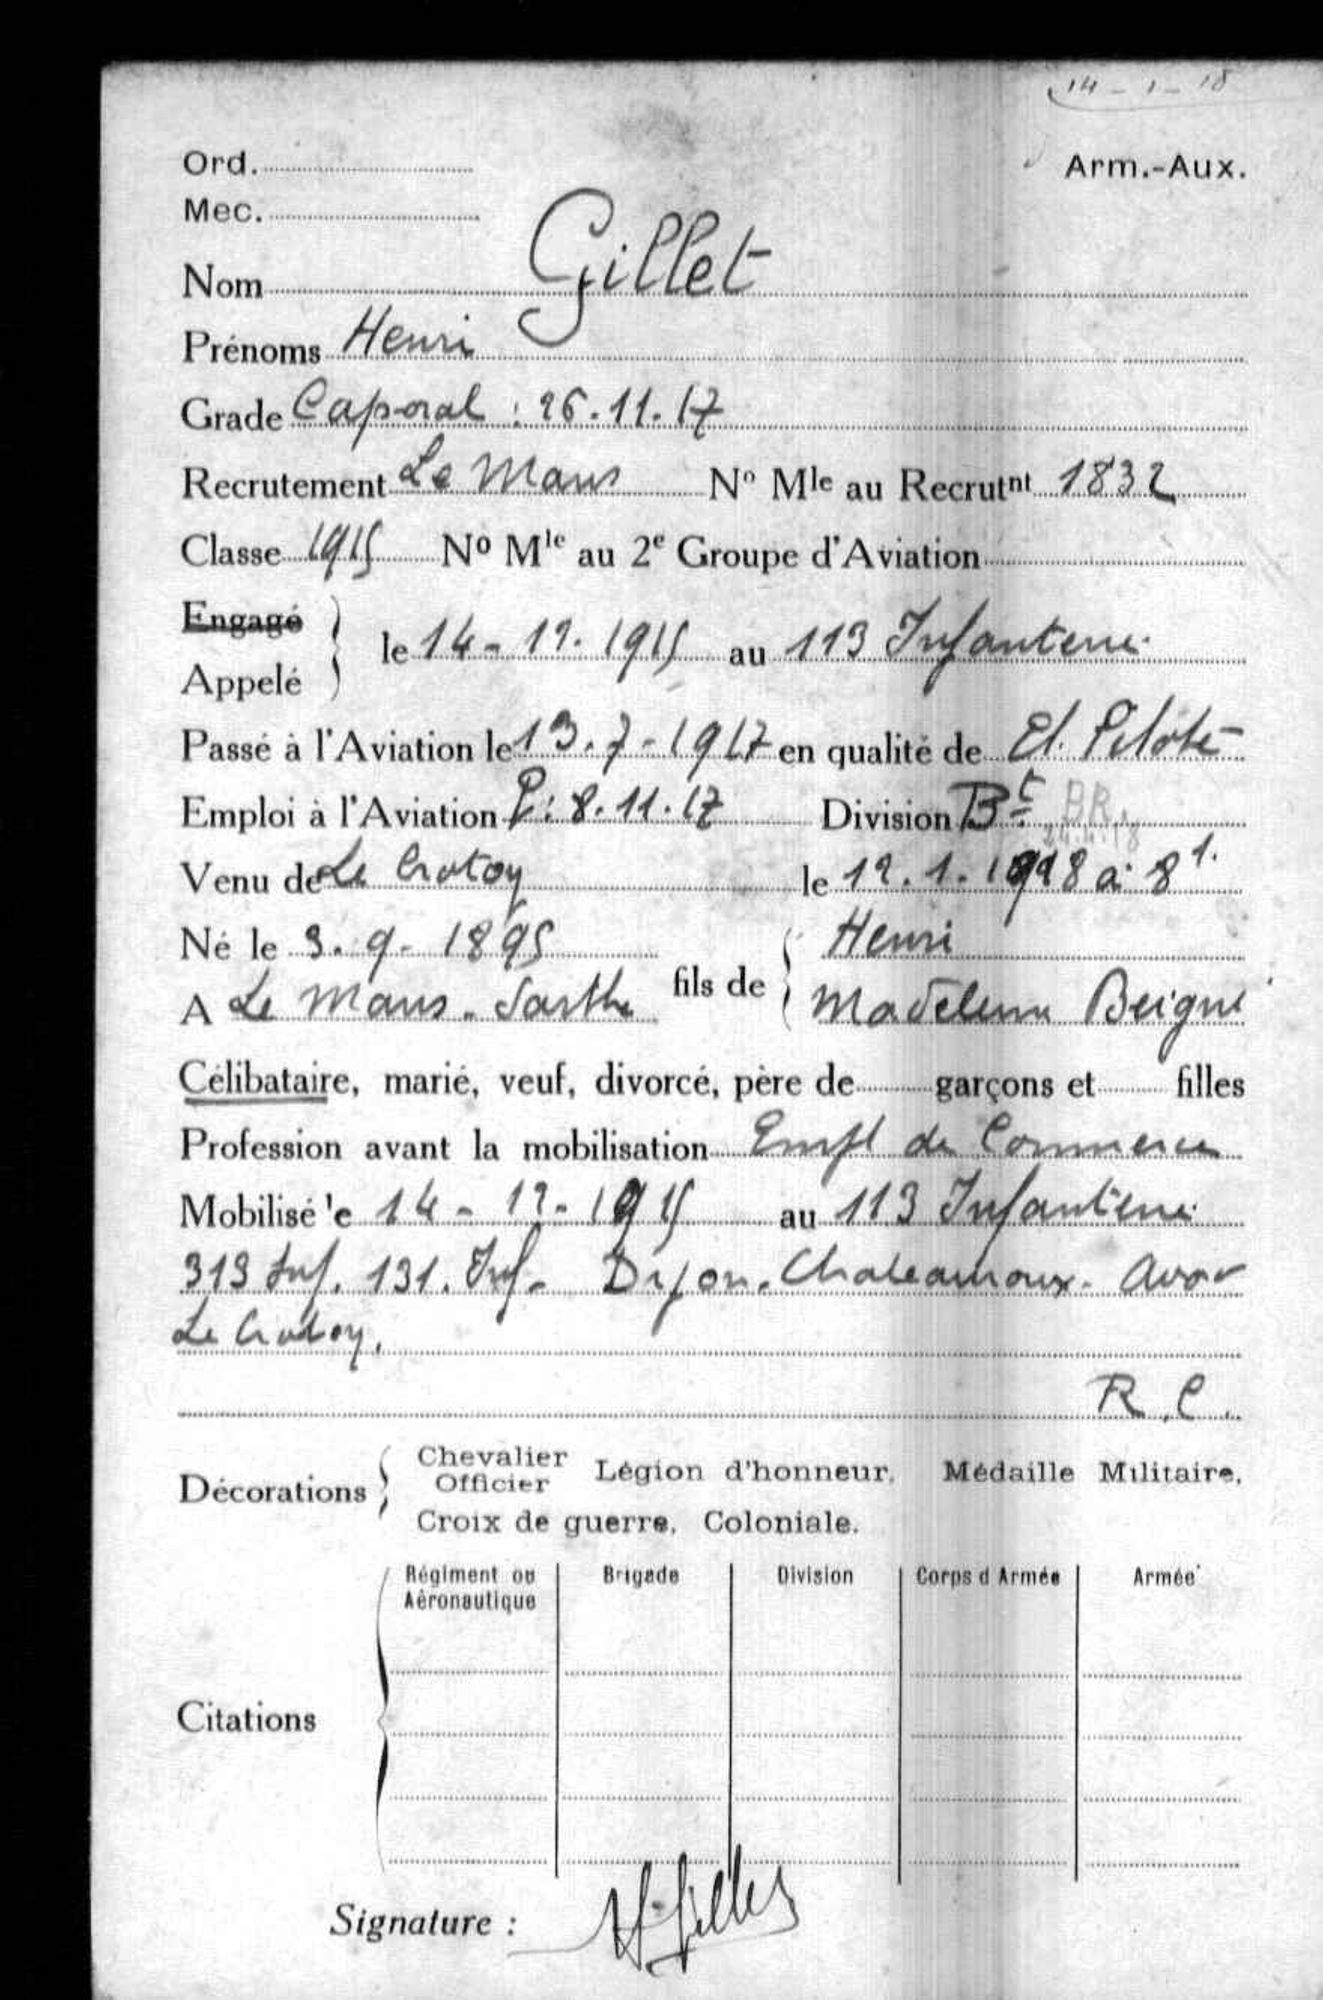 14 - 1 - 18
Ord.
Arm.-Aux.
Mec.
Nom Gillet
Prénoms Henri
Grade Caporal : 26.11.17
Recrutement Le Mans N° Mle au Recrutnt 1832
Classe 1915 N° Mle au 2e Groupe d'Aviation
Engagé
Appelé
le 14 - 12. 1915 au 113 Infanterie
Passé à l'Aviation le 13.7-1917 en qualité de El. Pilote
Emploi à l'Aviation P: 8.11.17 Division Bt BR.
Venu de Le Crotoy le 12.1.1918 à 81.
Né le 3. 9 - 1895
A Le Mans. Sarthe
fils de Henri
Madeleine Beigné
Célibataire, marié, veuf, divorcé, père de garçons et filles
Profession avant la mobilisation Empl de Commerce
Mobilisé le 14 - 12. 1915 au 113 Infanterie
313 Inf. 131. Inf. Dijon. Chateauroux. Avor
Le Crotoy.
R.C.
Décorations
Chevalier
Officier
Légion d'honneur, Médaille Militaire,
Croix de guerre, Coloniale.
Citations
Régiment ou Aéronautique
Brigade
Division
Corps d Armée
Armée
Signature : H Gillet